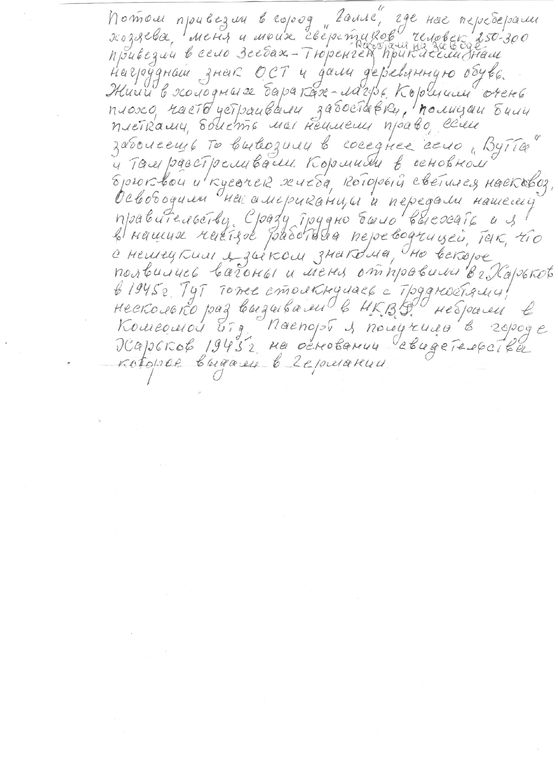 Потом привезли в город „Галле“, где нас переберали
хозяева, меня и моих сверстников человек 250-300
работали на заводе
привезли в село Зеебах-Тюренген прикле нам
нагрудный знак ОСТ и дали деревянную обувь.
Жили в холодных бараках-лагрь Кормили очень
плохо, часто устраивали забоставки, полицаи били
плетками, болеть мы неимели право, если
заболеешь то вывозили в соседнее село „Вутта“
и там расстреливали Кормили в основном
брюквой и кусочек хлеба, который светился насквозь.
Освободили нас американцы и передали нашему
правительству. Сразу трудно было выехать и я
в наших частях работала переводчицей, так, что
с немецким языком знакома, но вскоре
появились вагоны и меня отправили в г Харьков
в 1945г. Тут тоже столкнулась с трудностями,
несколько раз вызывали в Н.К.В.Д. небрали в
Комсомол итд. Паспорт я получила в городе
Харьков 1945г на основании свидетельства
которое выдали в Германии